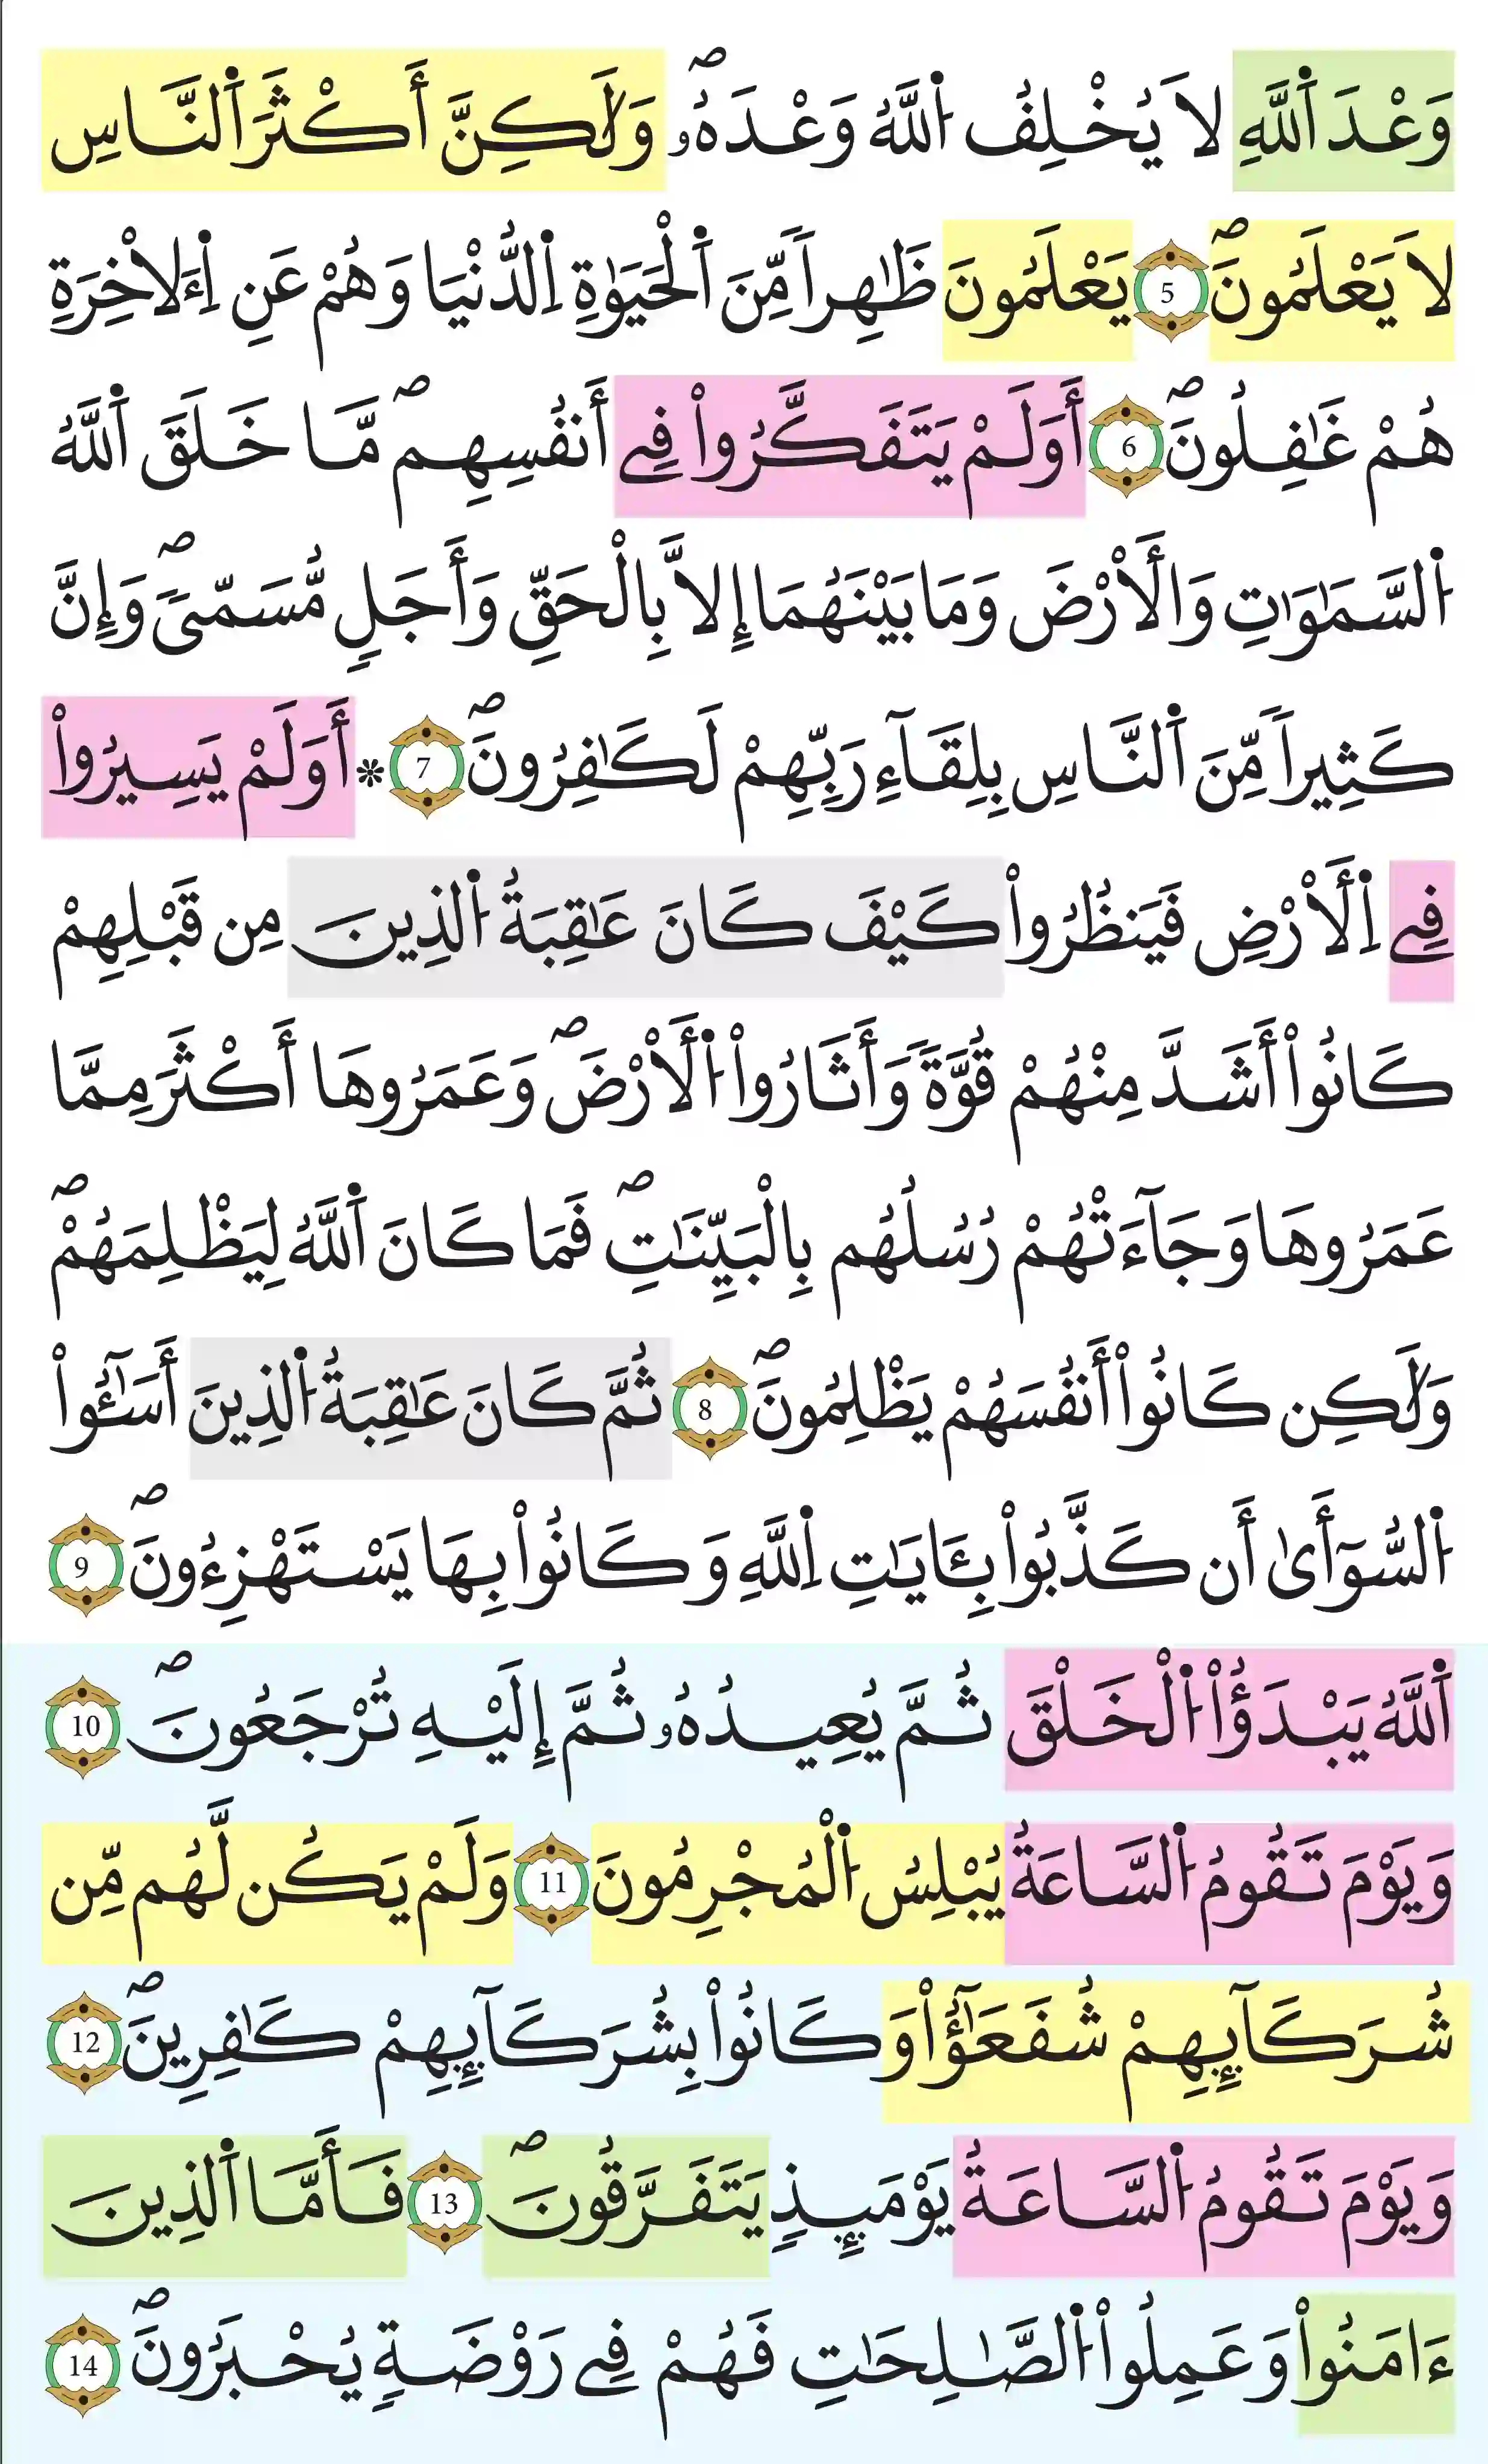 وَعْدَ اَ۬للَّهِ لَا يُخْلِفُ اُ۬للَّهُ وَعْدَهُۥۖ وَلَٰكِنَّ أَكْثَرَ اَ۬لنَّاسِ
لَا يَعْلَمُونَۖ 5 يَعْلَمُونَ ظَٰهِراٗ مِّنَ اَ۬لْحَيَوٰةِ اِ۬لدُّنْيَا وَهُمْ عَنِ اِ۬ءَلَاخِرَةِ
هُمْ غَٰفِلُونَۖ 6 أَوَلَمْ يَتَفَكَّرُواْ فِے أَنفُسِهِمۖ مَّا خَلَقَ اَ۬للَّهُ
اُ۬لسَّمَٰوَٰتِ وَالَارْضَ وَمَا بَيْنَهُمَا إِلَّا بِالْحَقِّ وَأَجَلٖ مُّسَمّىٗۖ وَإِنَّ
كَثِيراٗ مِّنَ اَ۬لنَّاسِ بِلِقَآءِ رَبِّهِمْ لَكَٰفِرُونَۖ 7 * أَوَلَمْ يَسِيرُواْ
فِے اِ۬لَارْضِ فَيَنظُرُواْ كَيْفَ كَانَ عَٰقِبَةُ اُ۬لذِينَ مِن قَبْلِهِمْ
كَانُواْ أَشَدَّ مِنْهُمْ قُوَّةٗ وَأَثَارُواْ اُ۬لَارْضَۖ وَعَمَرُوهَا أَكْثَرَ مِمَّا
عَمَرُوهَا وَجَآءَتْهُمْ رُسُلُهُم بِالْبَيِّنَٰتِۖ فَمَا كَانَ اَ۬للَّهُ لِيَظْلِمَهُمْۖ
وَلَٰكِن كَانُواْ أَنفُسَهُمْ يَظْلِمُونَۖ 8 ثُمَّ كَانَ عَٰقِبَةُ اُ۬لذِينَ أَسَٰٓـُٔواْ
اُ۬لسُّوٓأَىٰ أَن كَذَّبُواْ بِـَٔايَٰتِ اِ۬للَّهِ وَكَانُواْ بِهَا يَسْتَهْزِءُونَۖ 9
اَ۬للَّهُ يَبْدَؤُاْ اُ۬لْخَلْقَ ثُمَّ يُعِيدُهُۥ ثُمَّ إِلَيْهِ تُرْجَعُونَۖ 10
وَيَوْمَ تَقُومُ اُ۬لسَّاعَةُ يُبْلِسُ اُ۬لْمُجْرِمُونَ 11 وَلَمْ يَكُن لَّهُم مِّن
شُرَكَآئِهِمْ شُفَعَٰٓؤُاْ وَكَانُواْ بِشُرَكَآئِهِمْ كَٰفِرِينَۖ 12
وَيَوْمَ تَقُومُ اُ۬لسَّاعَةُ يَوْمَئِذٖ يَتَفَرَّقُونَۖ 13 فَأَمَّا اَ۬لذِينَ
ءَامَنُواْ وَعَمِلُواْ اُ۬لصَّٰلِحَٰتِ فَهُمْ فِے رَوْضَةٖ يُحْبَرُونَۖ 14